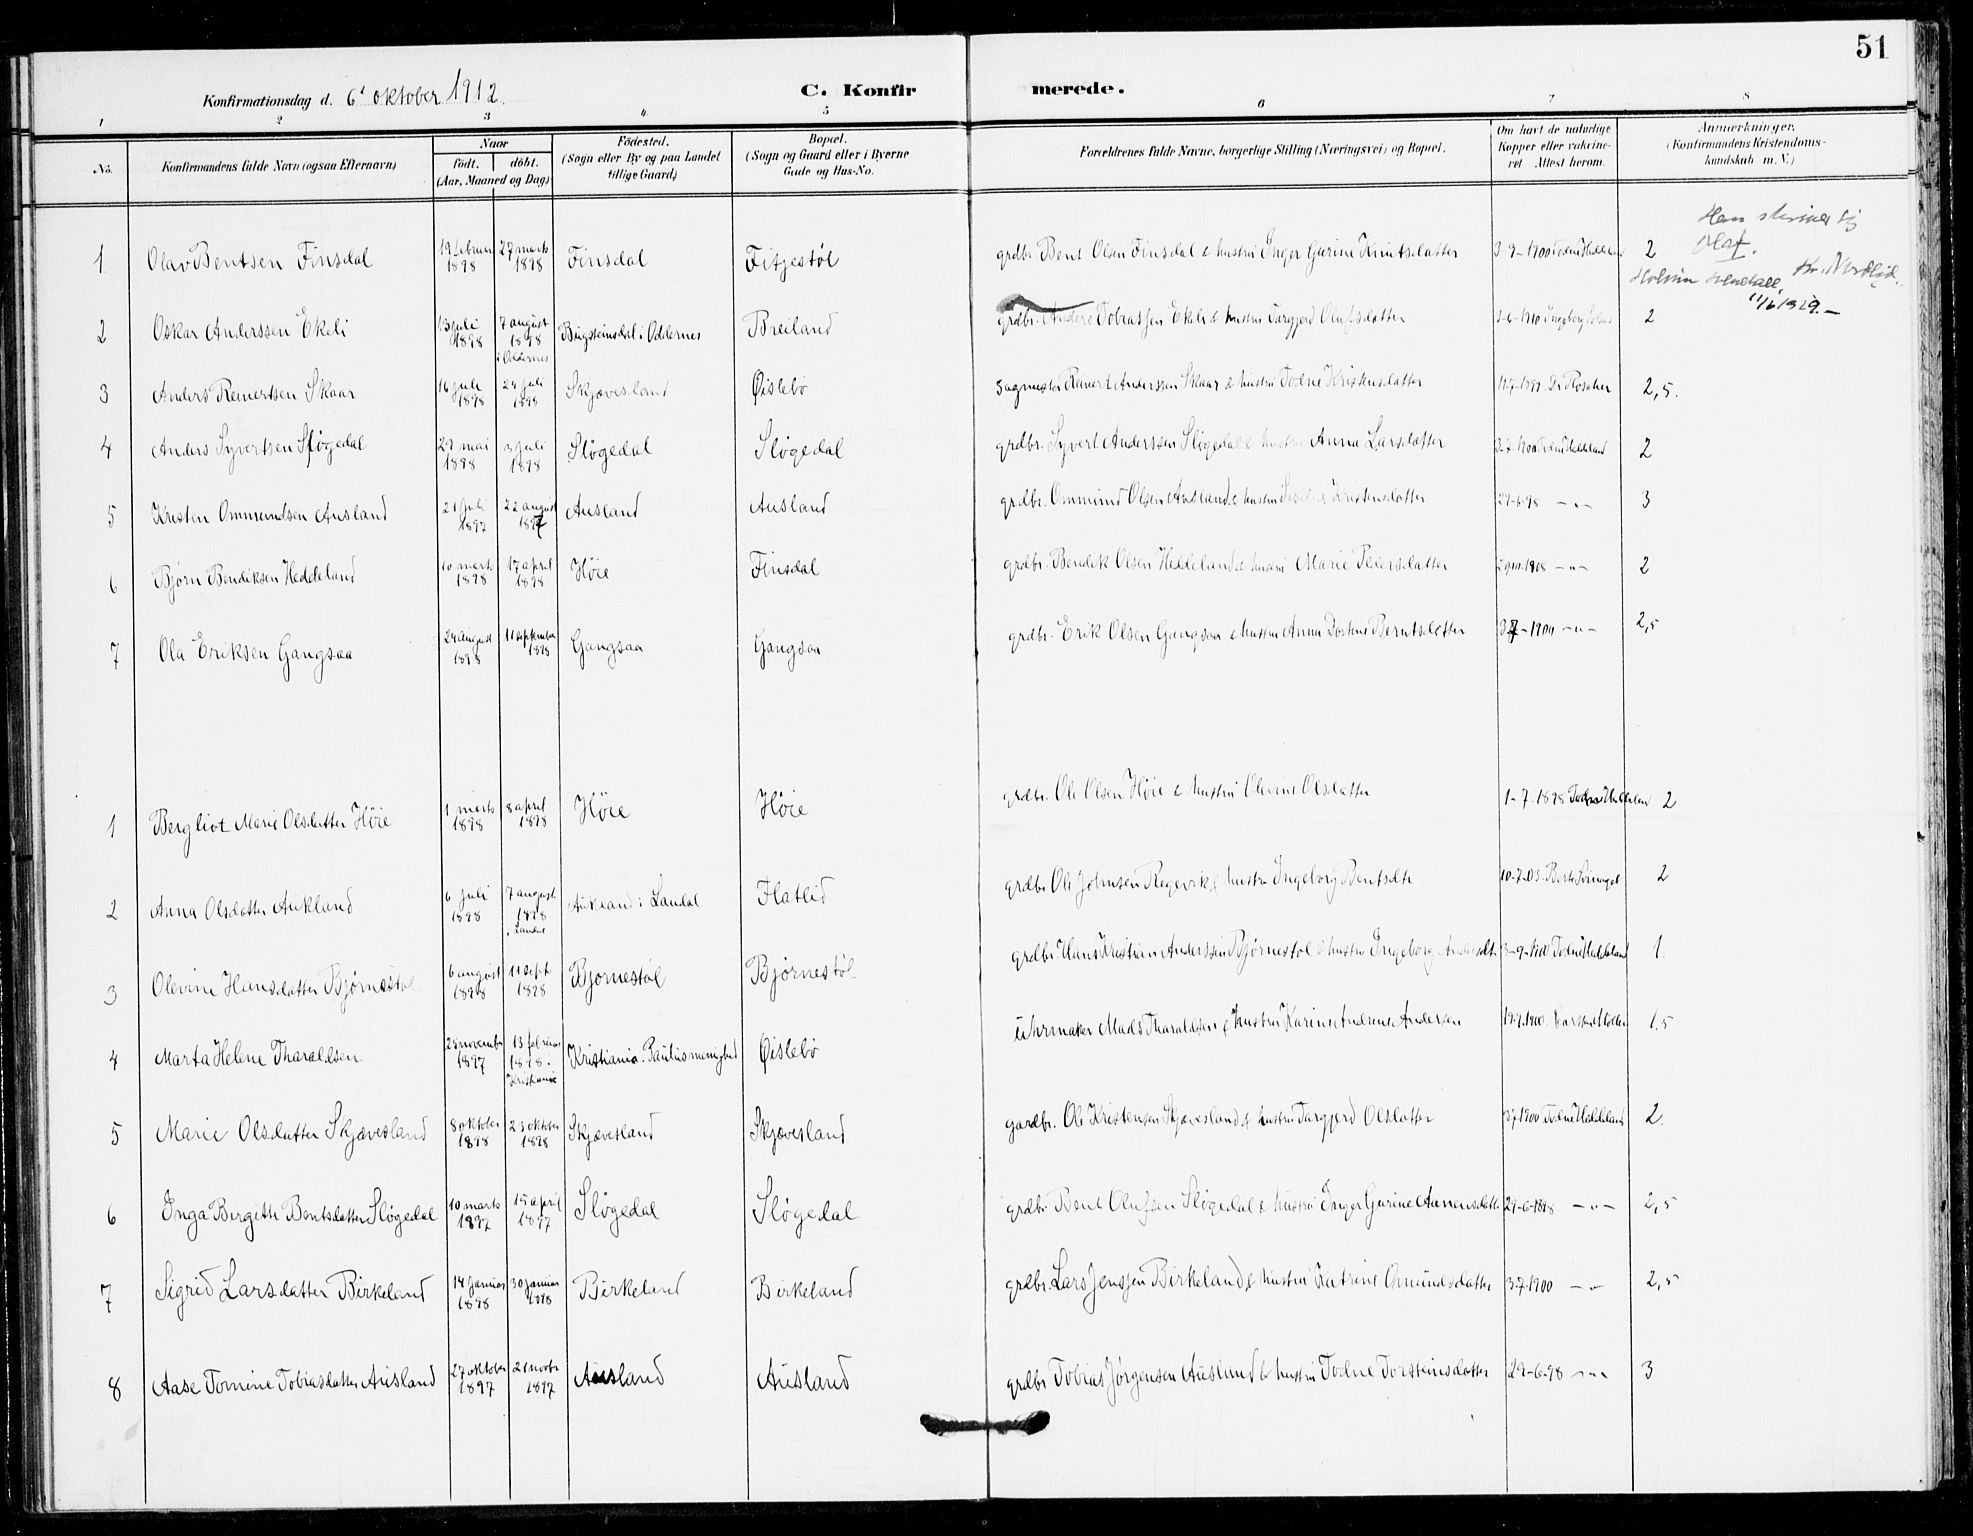 51
Konfirmationsdag d. 6' oktober 1912.
C. Konfirmerede.
1 2 3 4 5 6 7 8
No. | Konfirmandens fulde Navn (ogsaa Efternavn) | Naar født. døbt. (Aar, Maaned og Dag) | Fødested. (Sogn eller By og paa Landet tillige Gaard) | Bopæl. (Sogn og Gaard eller i Byerne Gade og Hus-No. | Forældrenes fulde Navne, borgerlige Stilling (Næringsvei) og Bopæl. | Om havt de naturlige Kopper eller vaccineret. Attest herom. | Anmærkninger. (Konfirmandens Kristendomskundskab m. V.)
Han skriver sig Olaf.
1 Olav Bentsen Finsdal | 19 februar 1898 | 27 marts 1898 | Finsdal | Fitjestøl | grdbr. Bent Olsen Finsdal & hustru Inger Gurine Knutsdatter | 3-9-1900 | 2
11/6 1929.
2 Oskar Anderssen Ekeli | 13 juli 1898 | 7 august 1898 i Oddernes | i Oddernes | Breiland | grdbr. Anders Tobiassen Ekeli & hustru Torgjerd Olufsdatter | 2
3 Anders Reinertsen Skaar | 16 juli 1898 | 24 juli 1898 | Skjævesland | Øislebø | Reinert Anderssen Skaar & hustru Todne Kristensdatter | 2,5.
4 Anders Syvertsen Sløgedal | 29 mai 1898 | 3 juli 1898 | Sløgedal | Sløgedal | grdbr. Syvert Anderssen Sløgedal & hustru Anna Larsdatter | 3-7-1900 | 2
5 Kristen Ommundsen Ausland | 21 juli 1897 | 22 august 1897 | Ausland | Ausland | grdbr. Ommund Olsen Ausland & hustru Kristensdatter | 29-6-98 -"- | 3
6 Bjørn Bendiksen Heddeland | 10 marts 1898 | 17 april 1898 | Høie | Finsdal | grdbr. Bendik Olsen Heddeland & hustru Marie Pedersdatter | -"- | 2
7 Ola Eriksen Gangsaa | 24 august 1898 | 11 september 1898 | Gangsaa | Gangsaa | grdbr. Erik Olsen Gangsaa & hustru Anna Berntsdatter | 3-7-1900 -"- | 2,5
1 Bergliot Marie Olsdatter Høie | 1 marts 1898 | 8 april 1898 | Høie | Høie | grdbr. Ole Olsen Høie & hustru Olevine Olsdatter | 1-7-1898 | 2
2 Anna Olsdatter Aukland | 6 juli 1898 | 7 august 1898 i Laudal | Aukland i Laudal | Flatlid | grdbr. Ole Johnsen Regevik & hustru Ingeborg Bentsdtr. | 10-7-03 | 2
3 Olevine Hansdatter Bjørnestøl | 6 august 1898 | 11 sept 1898 | Bjørnestøl | Bjørnestøl | grdbr. Hans Kristian Anderssen Bjørnestøl & hustru Ingeborg | 3-9-1900 | 1.
4 Marta Helene Tharaldsen | 23 november 1897 | 13 februar 1898. Kristiania | Kristiania. Paulus menighed | Øislebø | uhrmaker Mads Tharaldsen & hustru Karine Andrene Andersen | 1,5
5 Marie Olsdatter Skjævesland | 8 oktober 1898 | 23 oktober 1898 | Skjævesland | Skjævesland | gardbr. Ole Kristensen Skjævesland & hustru Torgjerd Olsdatter | 2.
6 Inga Birgitte Bentsdatter Sløgedal | 10 marts 1897 | 15 april 1897 | Sløgedal | Sløgedal | grdbr. Bent Olufsen Sløgedal & hustru Inger Gurine | 29-6-1898 -"- | 2,5
7 Sigrid Larsdatter Birkeland | 14 januar 1898 | 30 januar 1898 | Birkeland | Birkeland | grdbr. Lars Jenssen Birkeland & hustru Katrine Omundsdatter | 3-7-1900 -"- | 2,5
8 Aase Tomine Tobiasdatter Ausland | 27 oktober 1897 | 21 novbr 1897 | Ausland | Ausland | grdbr Tobias Jørgensen Ausland & hustru Todne Torsteinsdatter | 29-6-98 -"- | 3